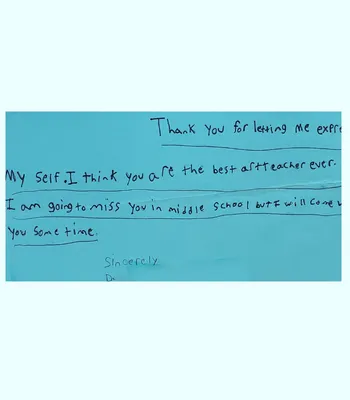 Thank you for letting me expre
My self. I think you are the best artteacher ever.
I am going to miss you in middle school but I will come v
you some time.
Sincerely
D